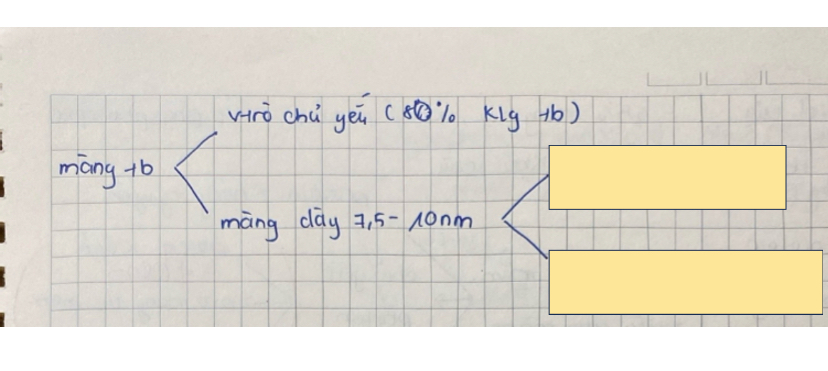 v.trò chủ yếu (80% klg tb)
màng tb
màng dày 7,5 - 10nm